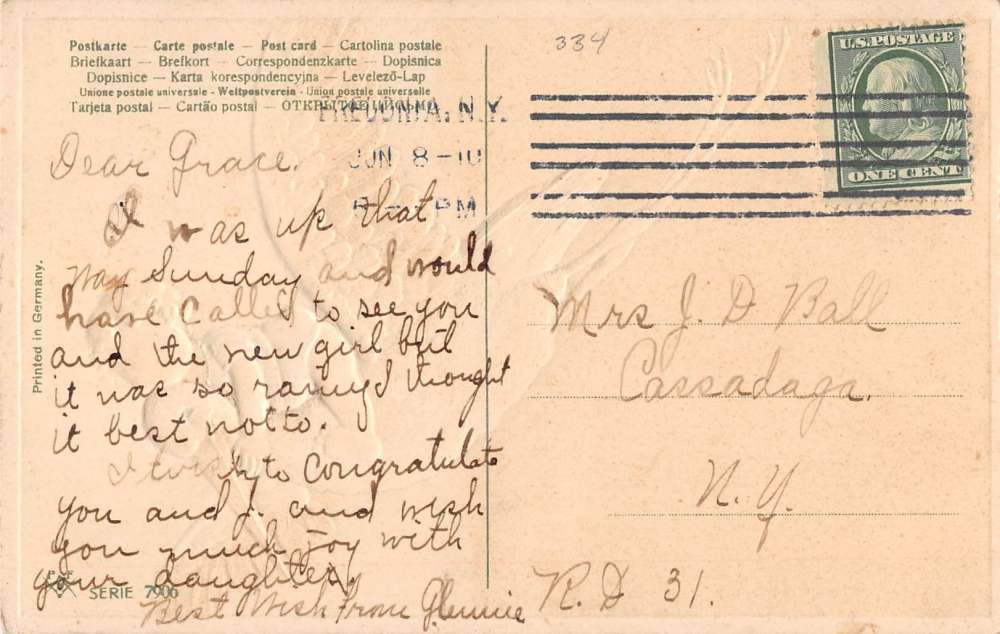 Postkarte — Carte postale — Post card — Cartolina postale
Briefkaart — Brefkort — Correspondenzkarte — Dopisnica
Dopisnice — Karta korespondencyjna — Levelező-Lap
Unione postale universale - Weltpostverein - Union postale universelle
Tarjeta postal — Cartão postal — ОТКРЫТОЕ ПИСЬМО
334
U.S. POSTAGE
ONE CENT
FREDONIA, N.Y.
JUN 8 - 10
PM
Dear Grace.
I was up that
way Sunday and would
have called to see you
and the new girl but
it was so rainy I thought
it best not to.
I wish to Congratulate
you and J. and wish
you much joy with
your daughter.
Best Wish from Glennie
Mrs J. D Ball
Cassadaga.
N.Y.
R. D 31.
Printed in Germany.
SERIE 7906